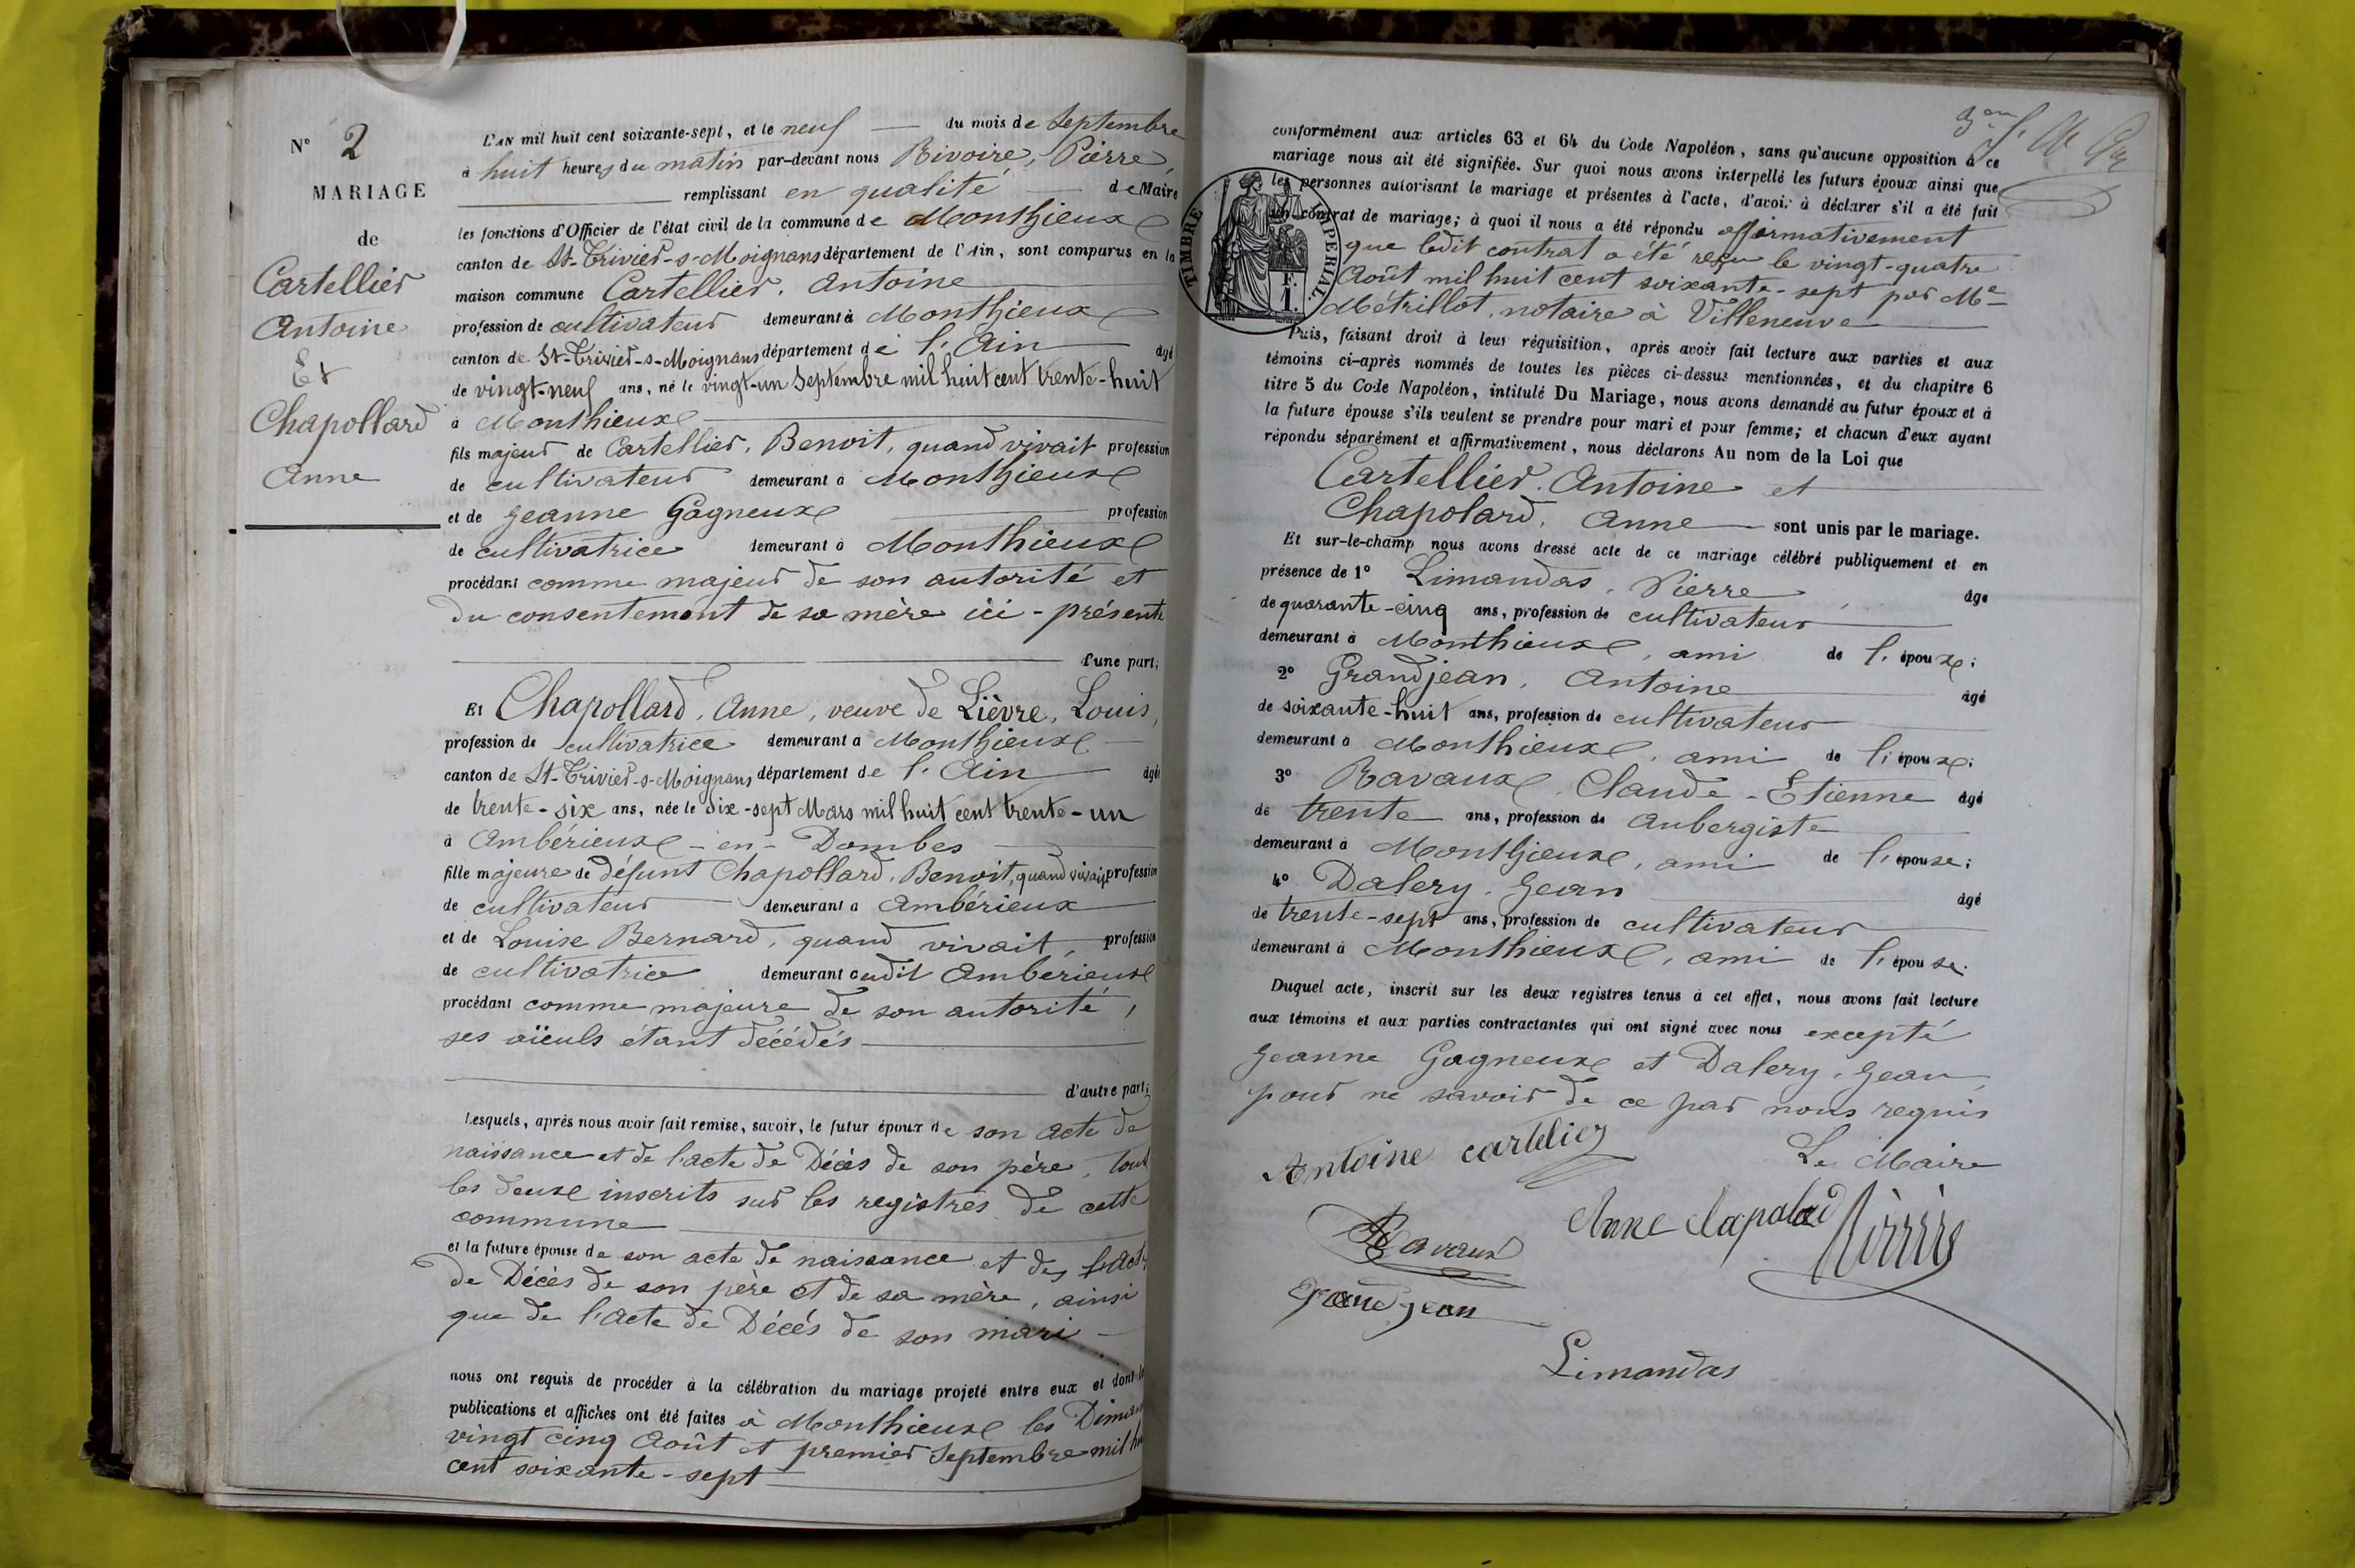 N° 2
MARIAGE
de
Cartellier
Antoine
Et
Chapollard
Anne
L'AN mil huit cent soixante-sept, et le neuf du mois de Septembre
à huit heures du matin par-devant nous Rivoire, Pierre
remplissant en qualité de Maire
les fonctions d'Officier de l'état civil de la commune de Monthieux
canton de St-Trivier-s-Moignans département de l'Ain, sont comparus en la
maison commune Cartellier, Antoine
profession de cultivateur demeurant à Monthieux
canton de St-Trivier-s-Moignans département de l'Ain âgé
de vingt-neuf ans, né le vingt-un Septembre mil huit cent trente-huit
à Monthieux
fils majeur de Cartellier, Benoit, quand vivait profession
de cultivateur demeurant à Monthieux
et de Jeanne Gagneux profession
de cultivatrice demeurant à Monthieux
procédant comme majeur de son autorité et
du consentement de sa mère ici-présente
d'une part;
Et Chapollard, Anne, veuve de Lièvre, Louis,
profession de cultivatrice demeurant à Monthieux
canton de St-Trivier-s-Moignans département de l'Ain âgée
de trente-six ans, née le dix-sept Mars mil huit cent trente-un
à Ambérieux-en-Dombes
fille majeure de défunt Chapollard, Benoit, quand vivait profession
de cultivateur demeurant à Ambérieux
et de Louise Bernard, quand vivait, profession
de cultivatrice demeurant audit Ambérieux
procédant comme majeure de son autorité,
ses aïeuls étant décédés
d'autre part;
Lesquels, après nous avoir fait remise, savoir, le futur époux de son acte de
naissance et de l'acte de Décès de son père, tous
les deux inscrits sur les registres de cette
commune
et la future épouse de son acte de naissance et des
de Décès de son père et de sa mère, ainsi
que de l'acte de Décès de son mari
nous ont requis de procéder à la célébration du mariage projeté entre eux et dont
publications et affiches ont été faites à Monthieux les
vingt cinq Août et premier Septembre mil
cent soixante-sept
conformément aux articles 63 et 64 du Code Napoléon, sans qu'aucune opposition à ce
mariage nous ait été signifiée. Sur quoi nous avons interpellé les futurs époux ainsi que
les personnes autorisant le mariage et présentes à l'acte, d'avoir à déclarer s'il a été fait
un contrat de mariage; à quoi il nous a été répondu affirmativement
que ledit contrat a été reçu le vingt-quatre
Août mil huit cent soixante-sept par Me
Métrillot, notaire à Villeneuve
TIMBRE IMPERIAL
1 F.
Puis, faisant droit à leur réquisition, après avoir fait lecture aux parties et aux
témoins ci-après nommés de toutes les pièces ci-dessus mentionnées, et du chapitre 6
titre 5 du Code Napoléon, intitulé Du Mariage, nous avons demandé au futur époux et à
la future épouse s'ils veulent se prendre pour mari et pour femme; et chacun d'eux ayant
répondu séparément et affirmativement, nous déclarons Au nom de la Loi que
Cartellier, Antoine et
Chapolard, Anne sont unis par le mariage.
Et sur-le-champ nous avons dressé acte de ce mariage célébré publiquement et en
présence de 1° Limandas, Pierre âgé
de quarante-cinq ans, profession de cultivateur
demeurant à Monthieux, ami de l'époux;
2° Grandjean, Antoine âgé
de soixante-huit ans, profession de cultivateur
demeurant à Monthieux, ami de l'époux;
3° Ravaux, Claude-Etienne âgé
de trente ans, profession de Aubergiste
demeurant à Monthieux, ami de l'épouse;
4° Dalery, Jean âgé
de trente-sept ans, profession de cultivateur
demeurant à Monthieux, ami de l'épouse.
Duquel acte, inscrit sur les deux registres tenus à cet effet, nous avons fait lecture
aux témoins et aux parties contractantes qui ont signé avec nous excepté
Jeanne Gagneux et Dalery, Jean,
pour ne savoir de ce par nous requis
Antoine cartelier
Le Maire
Anne Clapolard
Ravaux
Grandjean
Limandas